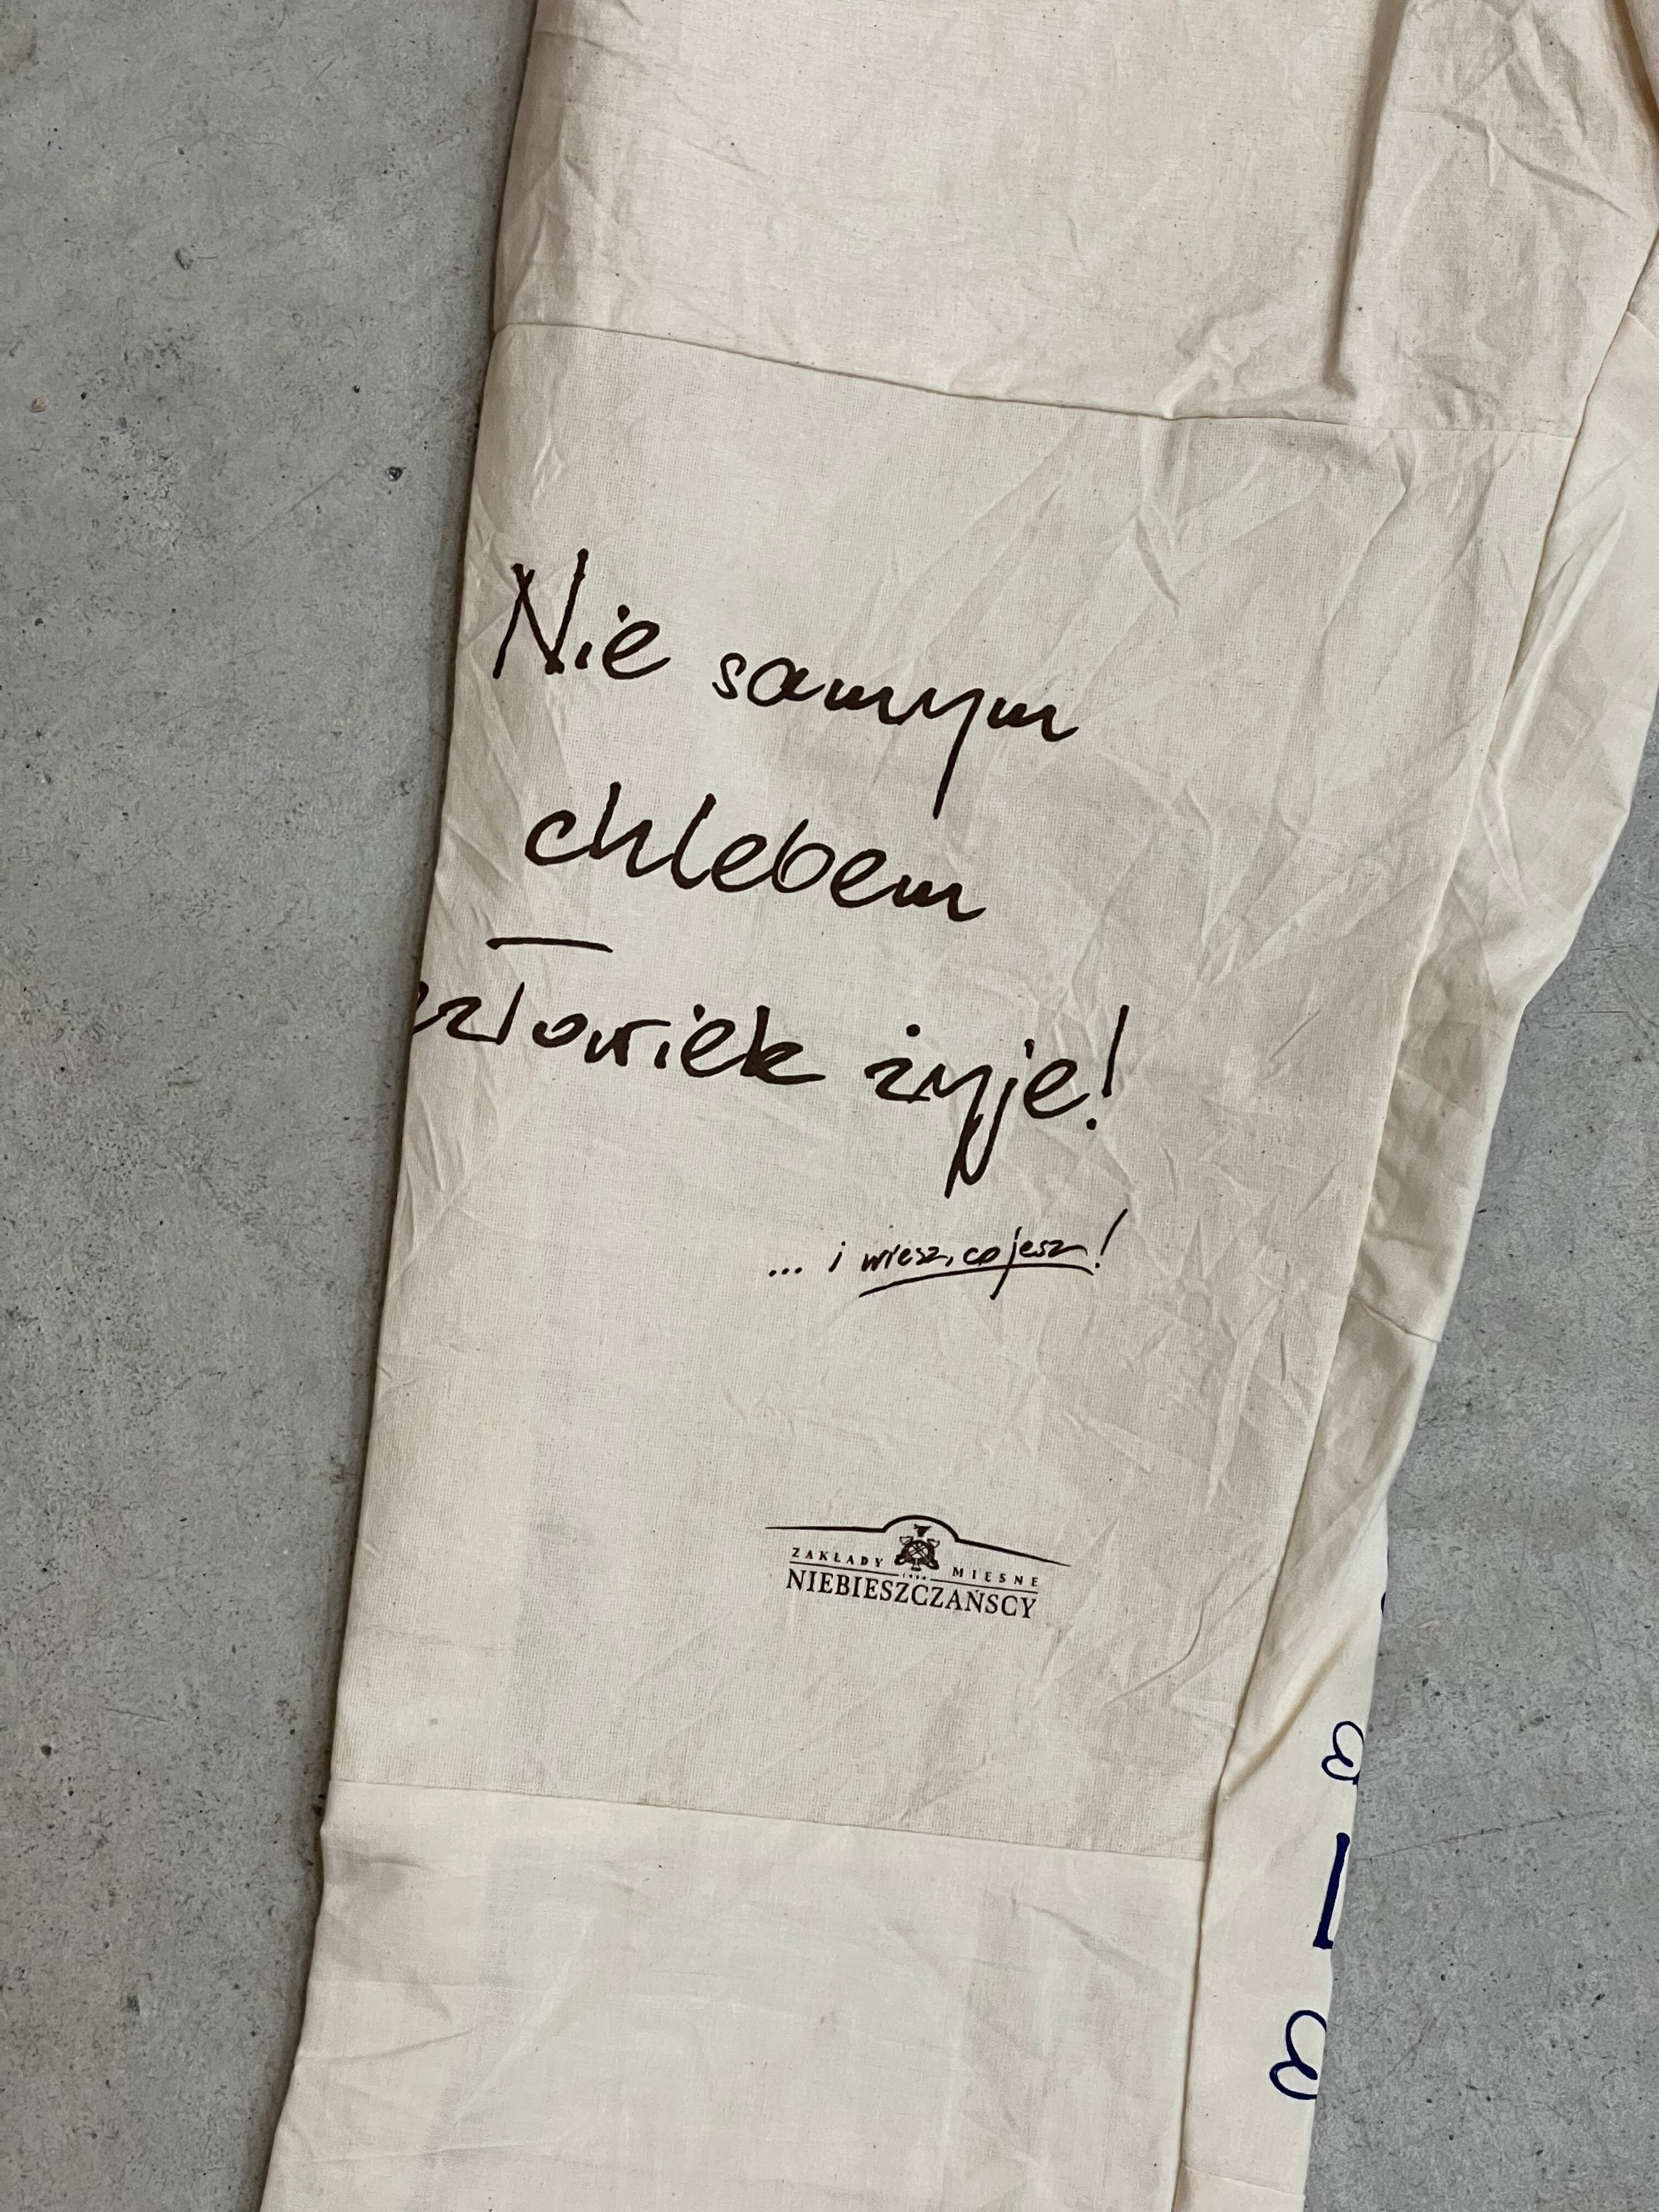 Nie samym
chlebem
człowiek żyje!
... i wiesz, co jesz!
ZAKŁADY MIĘSNE
NIEBIESZCZAŃSCY